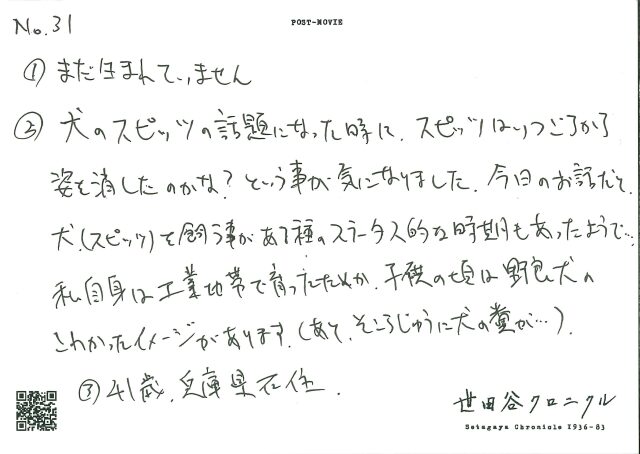 No.31
POST-MOVIE
① まだ生まれていません
② 犬のスピッツの話題になった時に、スピッツはいつごろから
姿を消したのかな?という事が気になりました。今日のお話だと、
犬(スピッツ)を飼う事がある種のステータス的な時期もあったようで…
私自身は工業地帯で育ったためか、子供の頃は野良犬の
こわかったイメージがあります。(あと、そこらじゅうに犬の糞が…)。
③ 41歳、兵庫県在住.
世田谷クロニクル
Setagaya Chronicle 1936-83